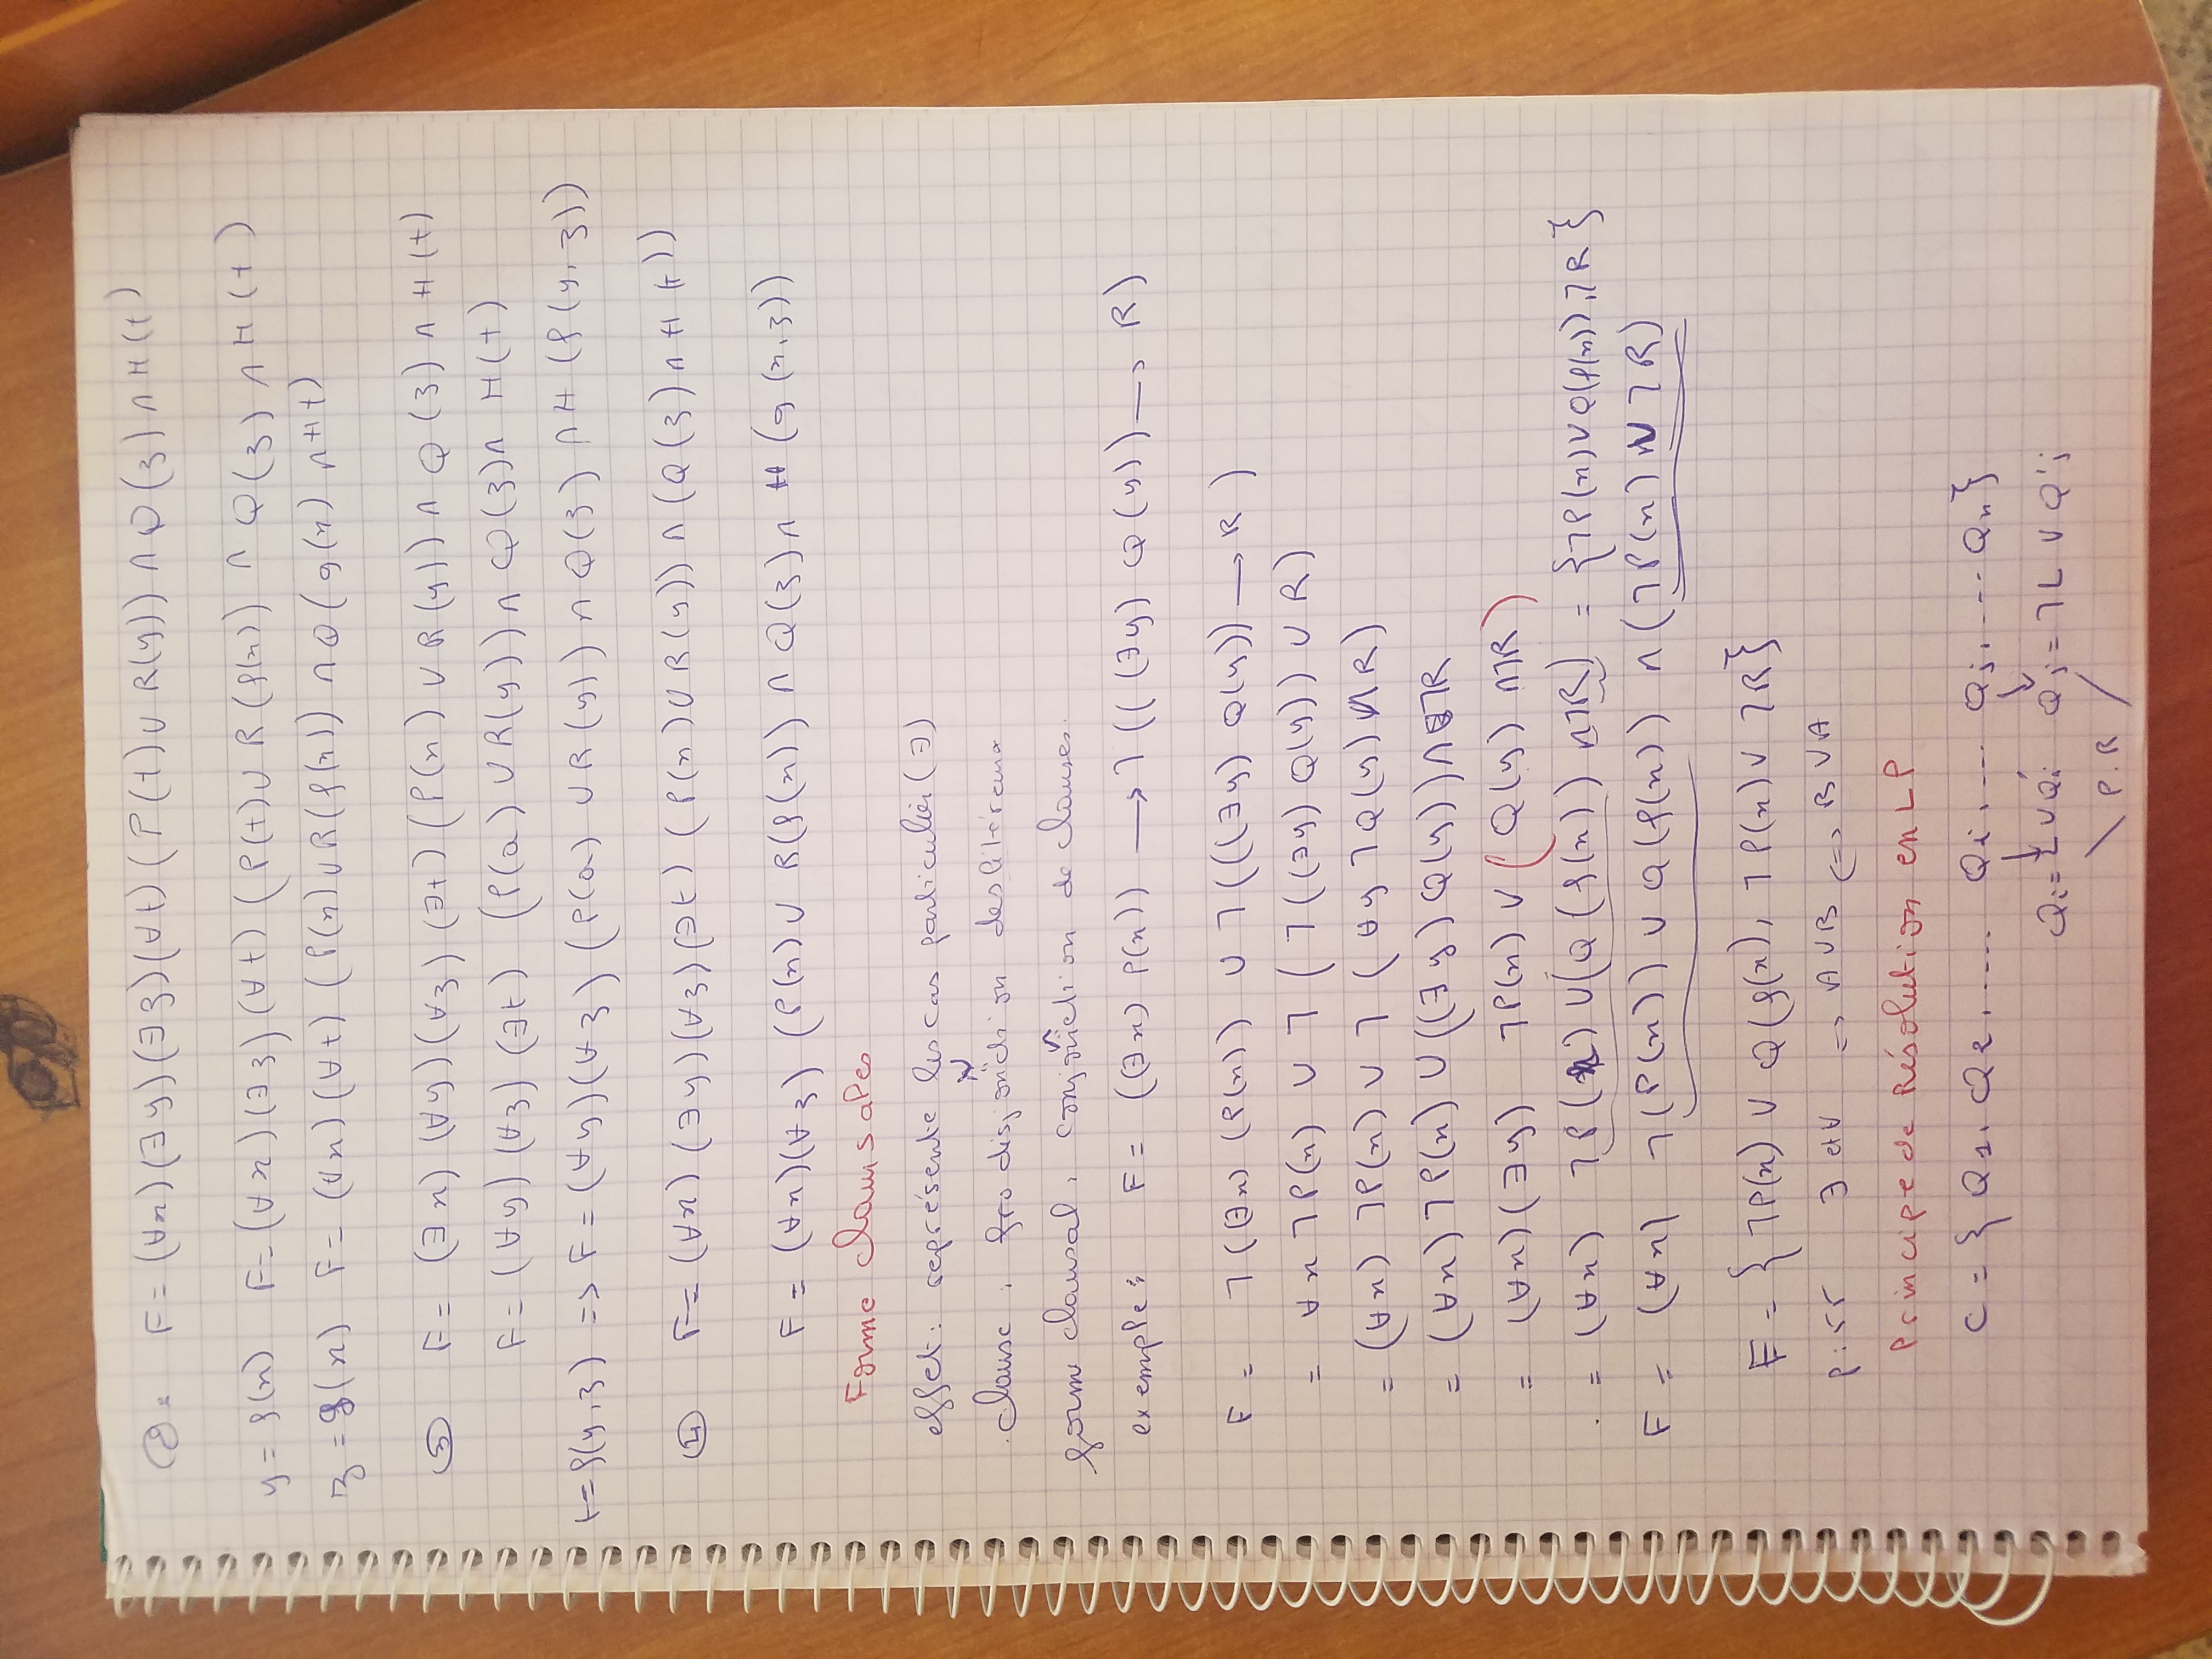 ②. F = (∀x)(∃y)(∃z)(∀t)(P(t) ∪ R(y)) ∧ Q(z) ∧ H(t)
y = f(x) F = (∀x)(∃z)(∀t)(P(t) ∪ R(f(x))) ∧ Q(z) ∧ H(t)
z = g(x) F = (∀x)(∀t)(P(x) ∪ R(f(x)) ∧ Q(g(x) ∧ H t)
③ F = (∃x)(∀y)(∀z)(∃t)(P(x) ∪ R(y)) ∧ Q(z) ∧ H(t)
F = (∀y)(∀z)(∃t) (P(a) ∪ R(y)) ∧ Q(z) ∧ H(t)
t = f(y,z) => F = (∀y)(∀z)(P(a) ∪ R(y)) ∧ Q(z) ∧ H(f(y,z))
④ F = (∀x)(∃y)(∀z)(∃t)(P(x) ∪ R(y)) ∧ (Q(z) ∧ H(t))
F = (∀x)(∀z)(P(x) ∪ R(f(x)) ∧ Q(z) ∧ H(g(x,z))
Forme Clausales
effet: représente les cas particulier (∃)
. Clause : disjonction des litéreaux
form clausal : conjonction de clauses.
exemple: F = ((∃x) P(x)) → ¬(((∃y) Q(y)) → R)
F = ¬((∃x) (P(x)) ∪ ¬(((∃y) Q(y)) → R)
= ∀x ¬P(x) ∪ ¬(¬((∃y) Q(y)) ∪ R)
= (∀x) ¬P(x) ∪ ¬(∀y ¬Q(y) ∪ R)
= (∀x) ¬P(x) ∪ ((∃y) Q(y)) ∧ ¬R
= (∀x)(∃y) ¬P(x) ∪ (Q(y) ∧ ¬R)
= (∀x) ¬P(x) ∪ (Q(f(x)) ∧ ¬R) = {¬P(x) ∪ Q(f(x)), ¬R}
F = (∀x) ¬(P(x)) ∪ Q(f(x)) ∧ (¬P(x) ∪ ¬R)
F = {¬P(x) ∪ Q(f(x), ¬P(x) ∪ ¬R}
∃ et ∀ => A ∪ B <=> B ∪ A
Principe de Résolution en LP
C = {Q1, Q2, ..... Qi, .... Qj, .... Qn}
Qi = L ∪ Q'i Qj = ¬L ∪ Q'j
\ P.R /